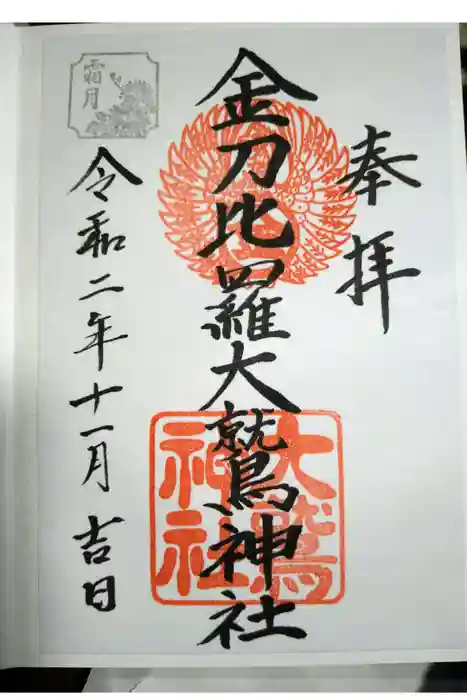 奉拝
金刀比羅大鷲神社
大鷲
神社
令和二年十一月吉日
霜月